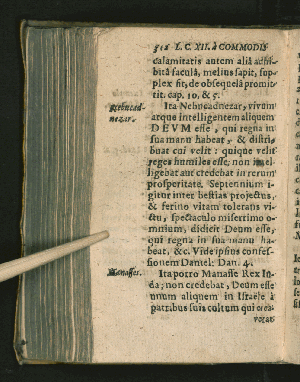 316 L. C. XII. à COMMODIS
calamitatis autem aliâ adhi-
bitâ faculâ, melius sapit, sup-
plex fit, & obsequela promit-
tit. cap. 10. & 5.
Nebucad-
nezar.
Ita Nebucadnezar, vivum
atque intelligentem aliquem
DEVM esse, qui regna in
sua manu habeat, & distri-
buat cui velit: quique velit
reges humiles esse, non intel-
ligebat aut credebat in rerum
prosperitate. Septennium i-
gitur inter bestias projectus,
& ferino vitam tolerans vi-
ctu, spectaculo miserrimo o-
mnium, didicit Deum esse,
qui regna in sua manu ha-
beat, &c. Vide ipsius confes-
sionem Daniel: Dan. 4.
Manasses.
Ita porro Manasse Rex Iu-
da; non credebat, Deum esse
unum aliquem in Israële à
patribus suis cultum qui crea-